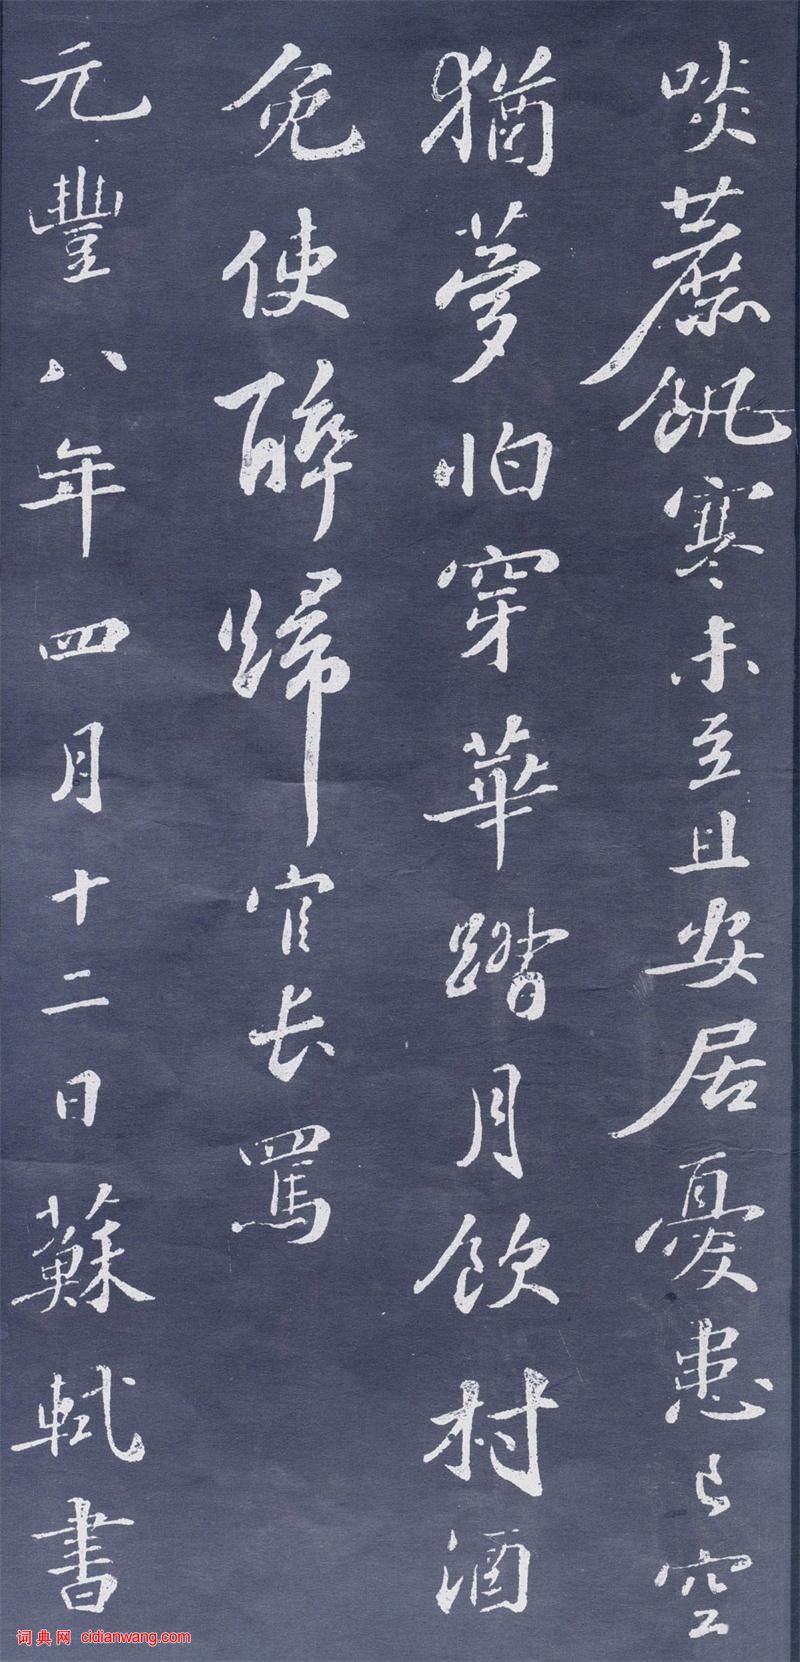 啖蔗飢寒未至且安居憂患已空
猶夢怕穿華踏月飲村酒
免使醉歸官長罵
元豐八年四月十二日蘇軾書
词典网 cidianwang.com